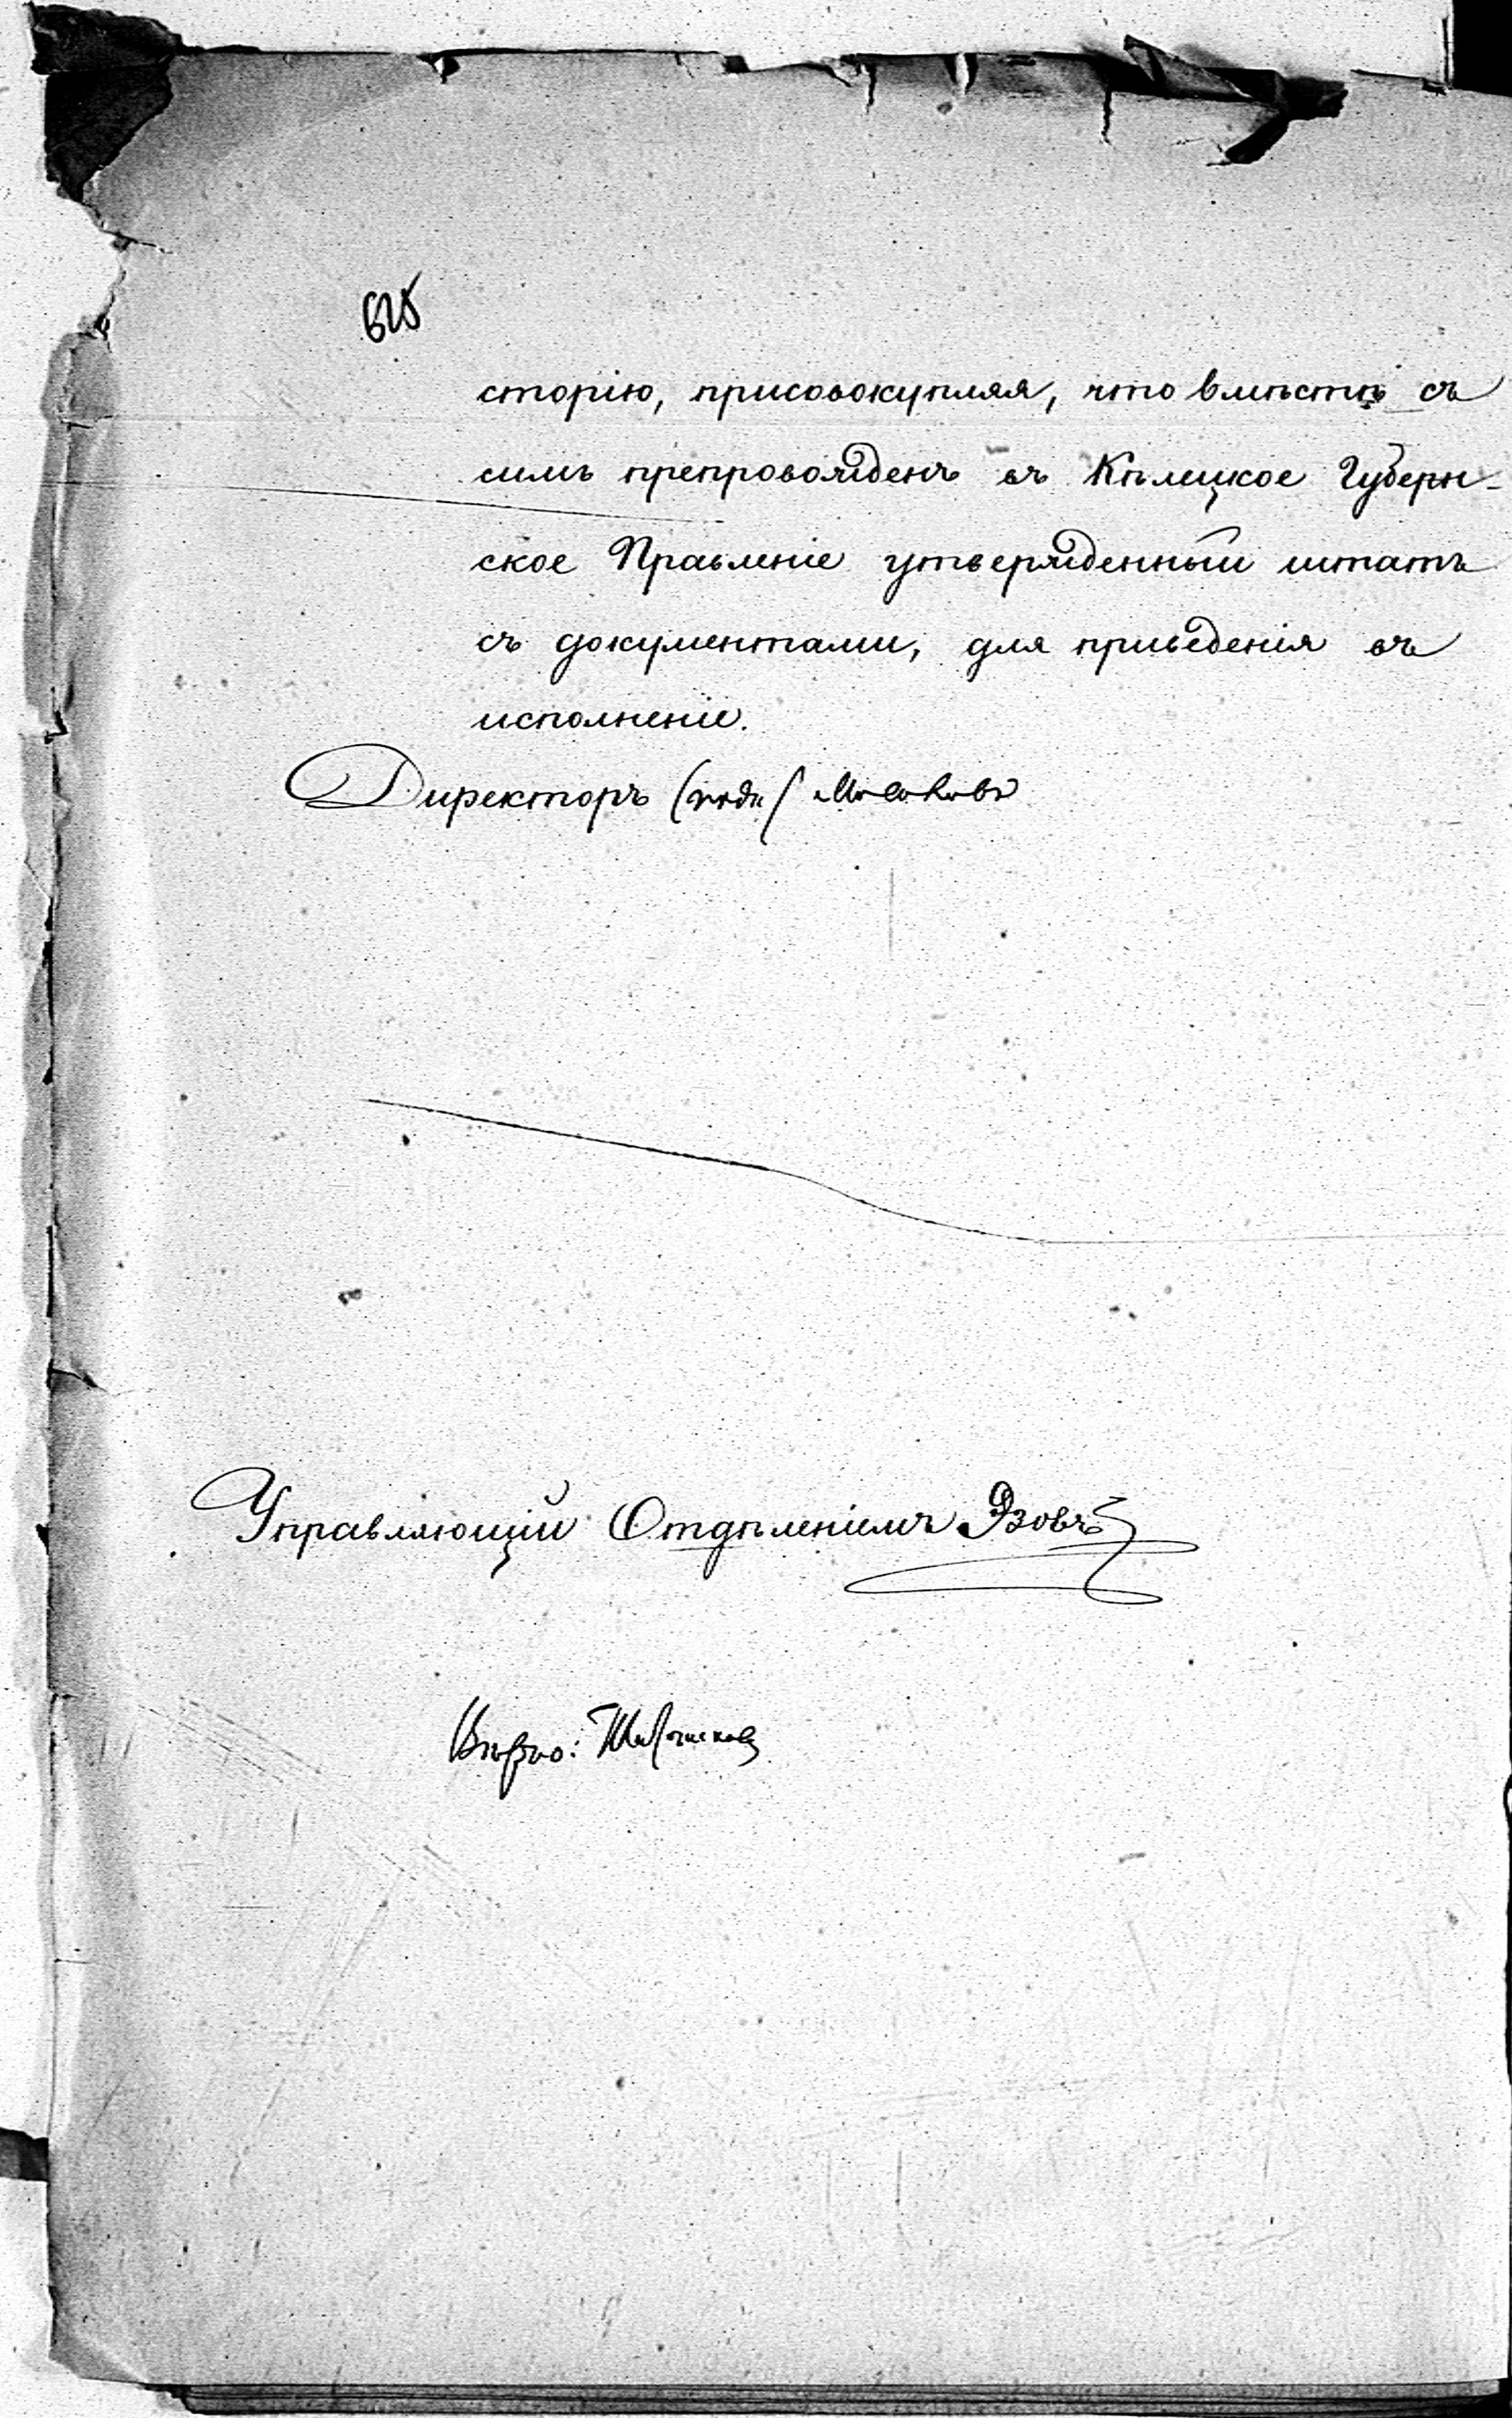 сторію, присовокупляя, что вмѣстѣ съ
симъ препровожденъ въ Кѣлецкое Губерн-
ское Правленіе утвержденный штатъ
съ документами, для приведенія въ
исполненіе.
Директоръ (подп) Мосоловъ
Управляющій Отдѣленіемъ Эзовъ
Вѣрно: